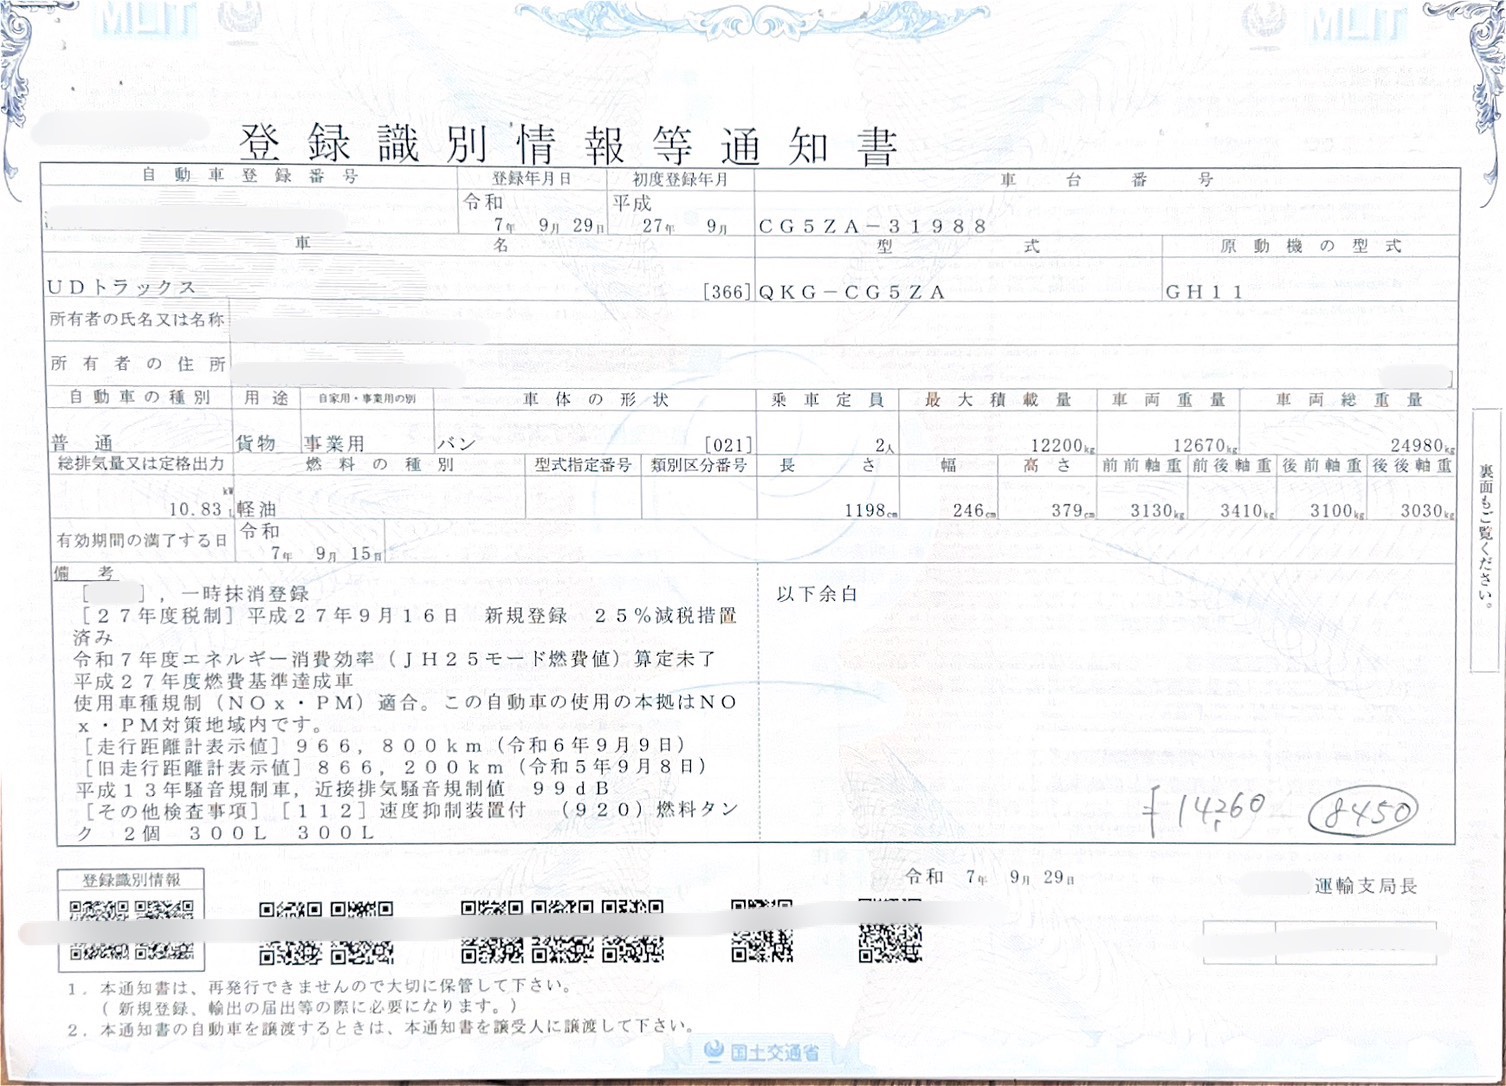 MLIT
MLIT
登録識別情報等通知書
自動車登録番号 登録年月日 初度登録年月 車台番号
令和 平成
7年 9月 29日 27年 9月 CG5ZA-31988
車名 型式 原動機の型式
UDトラックス [366] QKG-CG5ZA GH11
所有者の氏名又は名称
所有者の住所
自動車の種別 用途 自家用・事業用の別 車体の形状 乗車定員 最大積載量 車両重量 車両総重量
普通 貨物 事業用 バン [021] 2人 12200kg 12670kg 24980kg
総排気量又は定格出力 燃料の種別 型式指定番号 類別区分番号 長さ 幅 高さ 前前軸重 前後軸重 後前軸重 後後軸重
kW
10.83 L 軽油 1198cm 246cm 379cm 3130kg 3410kg 3100kg 3030kg
有効期間の満了する日 令和
7年 9月 15日
備考
[ ],一時抹消登録
[27年度税制]平成27年9月16日 新規登録 25%減税措置
済み
令和7年度エネルギー消費効率(JH25モード燃費値)算定未了
平成27年度燃費基準達成車
使用車種規制(NOx・PM)適合。この自動車の使用の本拠はNO
x・PM対策地域内です。
[走行距離計表示値]966,800km(令和6年9月9日)
[旧走行距離計表示値]866,200km(令和5年9月8日)
平成13年騒音規制車,近接排気騒音規制値 99dB
[その他検査事項][112]速度抑制装置付 (920)燃料タン
ク 2個 300L 300L
以下余白
14,260 8450
裏面もご覧ください。
登録識別情報
令和 7年 9月 29日
運輸支局長
1.本通知書は、再発行できませんので大切に保管して下さい。
(新規登録、輸出の届出等の際に必要になります。)
2.本通知書の自動車を譲渡するときは、本通知書を譲受人に譲渡して下さい。
国土交通省